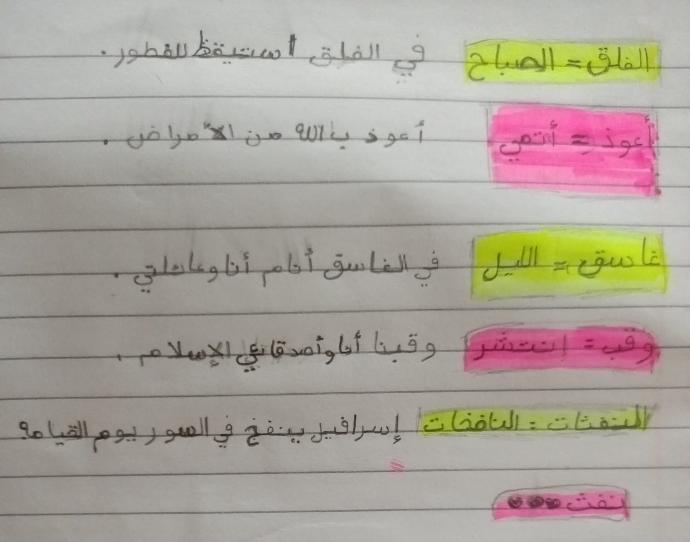 الفلق = الصباح في الفلق استيقظ للفطور.
أعوذ = أتمي أعوذ بالله من الأمراض.
غاسق = الليل في الغاسق أنام أنا وعائلتي.
وقب = إنتشر وقبنا أنا وأصدقائي الإسلام.
النفثات = النافخات إسرافيل ينفخ في الصور يوم القيامة
نفث